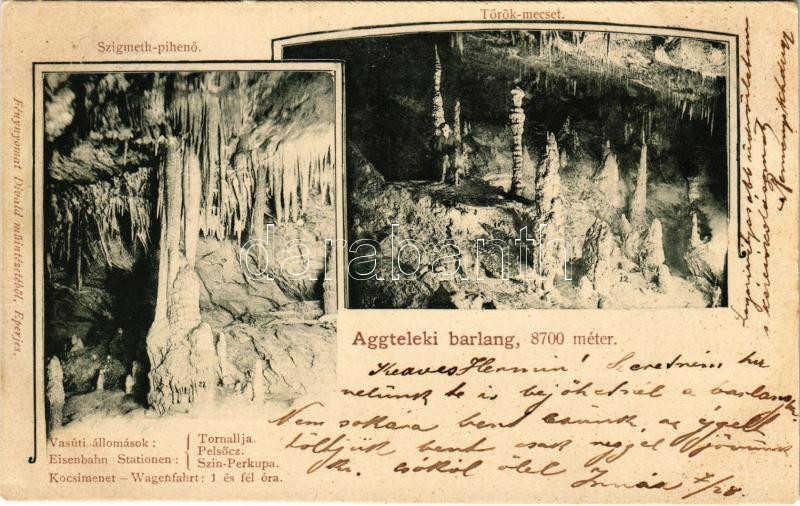 Török-mecset.
Szigmeth-pihenő.
Fénynyomat Divald műintézetéből, Eperjes.
darabanth.com
Aggteleki barlang, 8700 méter.
Vasúti állomások : Tornallja.
Pelsőcz.
Eisenbahn Stationen : Szin-Perkupa.
Kocsimenet – Wagenfahrt: 1 és fél óra.
Kedves Hermin! Szeretném ha
velünk te is bejöhetnél a barlangba.
Nem sokára bent leszünk, az éjjelt
töltjük bent csak reggel jövünk
ki. csókol ölel